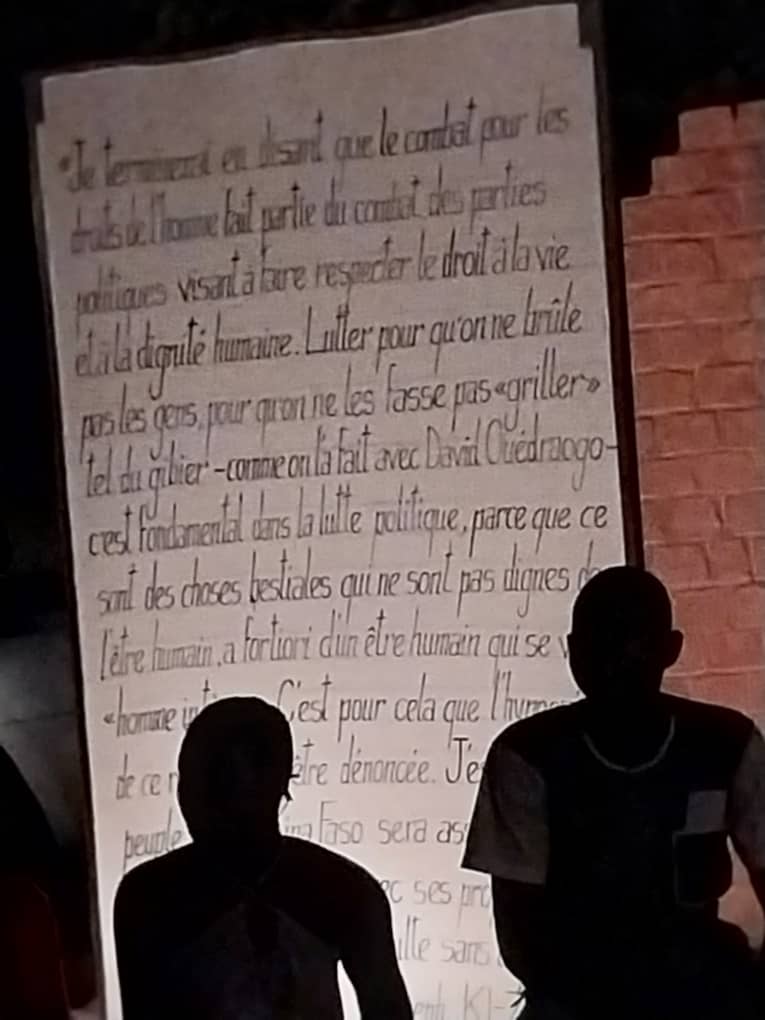 "Je terminerai en disant que le combat pour les
droits de l'homme fait partie du combat des parties
politiques visant à faire respecter le droit à la vie
et à la dignité humaine. Lutter pour qu'on ne brûle
pas les gens, pour qu'on ne les fasse pas «griller»
tel du gibier -comme on l'a fait avec David Ouédraogo-
c'est fondamental dans la lutte politique, parce que ce
sont des choses bestiales qui ne sont pas dignes
l'être humain, a fortiori d'un être humain qui se
«homme C'est pour cela que
de ce être dénoncée.
peuple Faso sera
ses
sans